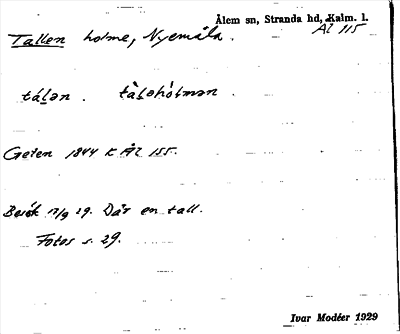 Ålem sn, Stranda hd, Kalm. l.
Tallen holme, Nyemåla.
Ål 115
tálən. tàləhòlmən.
Geten 1844 K Ål 155.
Besök 17/9 29. Där en tall.
Fotos s. 29.
Ivar Modéer 1929